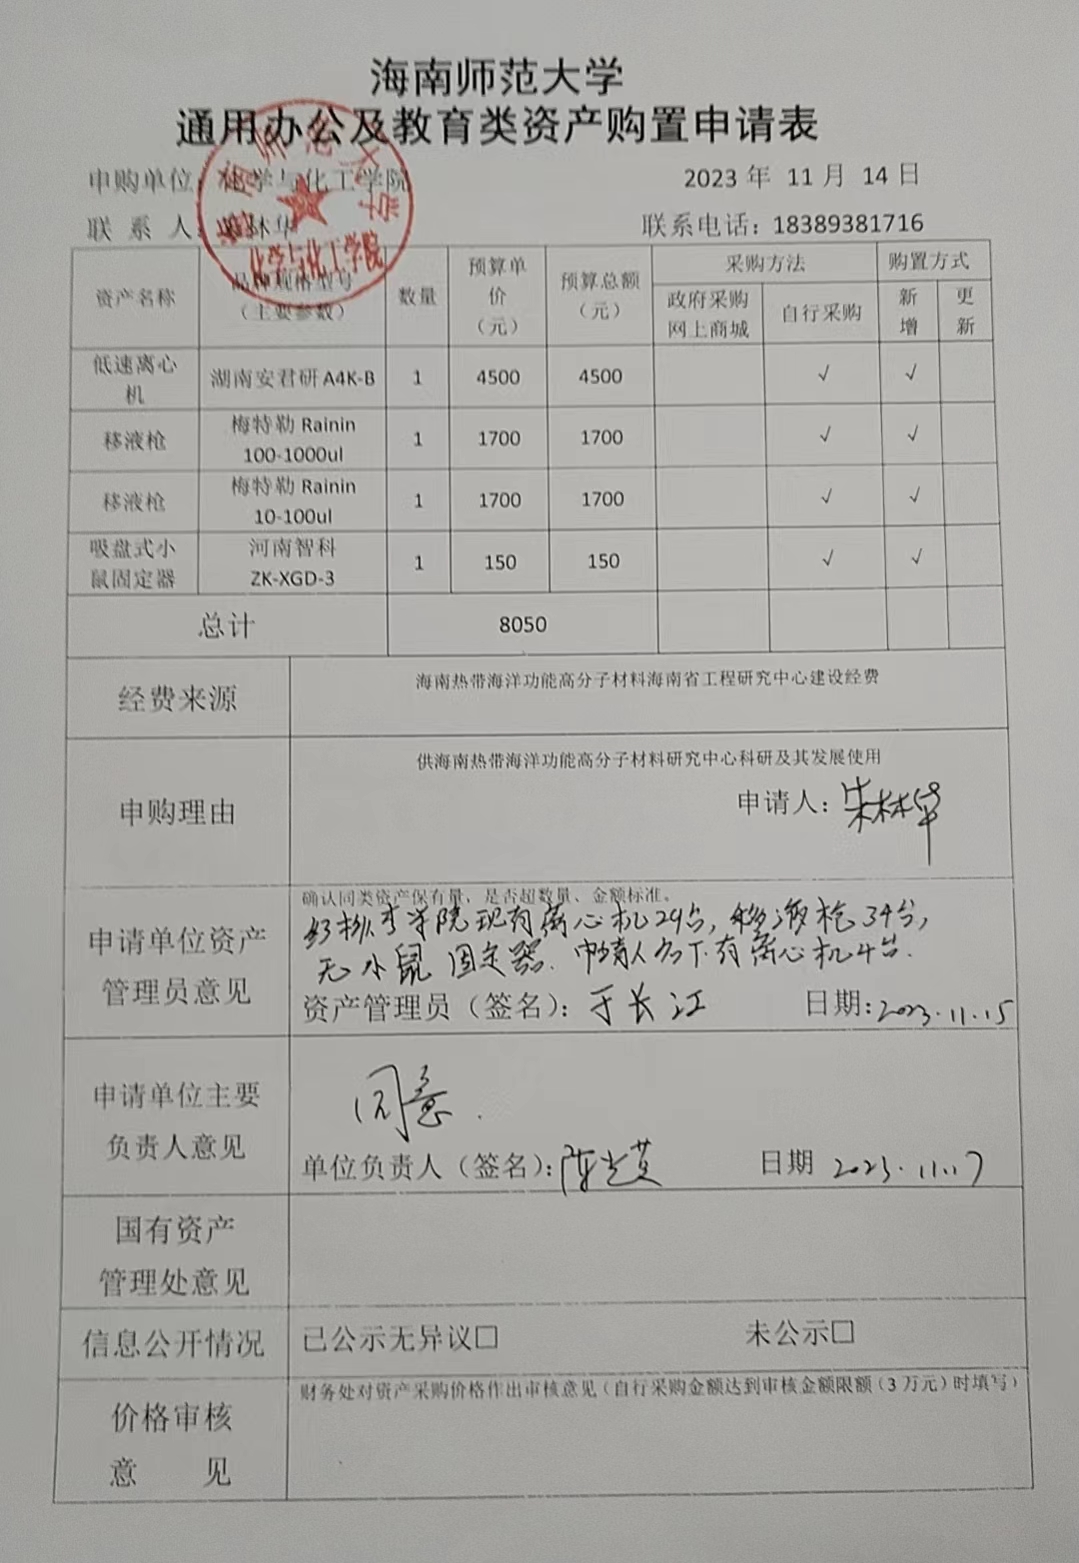 海南师范大学
通用办公及教育类资产购置申请表
申购单位：化学与化工学院 2023 年 11 月 14 日
联 系 人 林华 联系电话：18389381716
海南师范大学
化学与化工学院
资产名称 品牌规格型号（主要参数） 数量 预算单价（元） 预算总额（元） 采购方法 购置方式
政府采购网上商城 自行采购 新增 更新
低速离心机 湖南安君研 A4K-B 1 4500 4500 √ √
移液枪 梅特勒 Rainin 100-1000ul 1 1700 1700 √ √
移液枪 梅特勒 Rainin 10-100ul 1 1700 1700 √ √
吸盘式小鼠固定器 河南智科 ZK-XGD-3 1 150 150 √ √
总计 8050
经费来源 海南热带海洋功能高分子材料海南省工程研究中心建设经费
申购理由 供海南热带海洋功能高分子材料研究中心科研及其发展使用
申请人：朱林华
申请单位资产管理员意见 确认同类资产保有量，是否超数量、金额标准。
学院现有离心机29台，移液枪34台，
无小鼠固定器. 申请人名下有离心机4台.
资产管理员（签名）：于长江 日期：2023.11.15
申请单位主要负责人意见 同意.
单位负责人（签名）：陈光英 日期 2023.11.17
国有资产管理处意见
信息公开情况 已公示无异议□ 未公示□
价格审核意 见 财务处对资产采购价格作出审核意见（自行采购金额达到审核金额限额（3 万元）时填写）